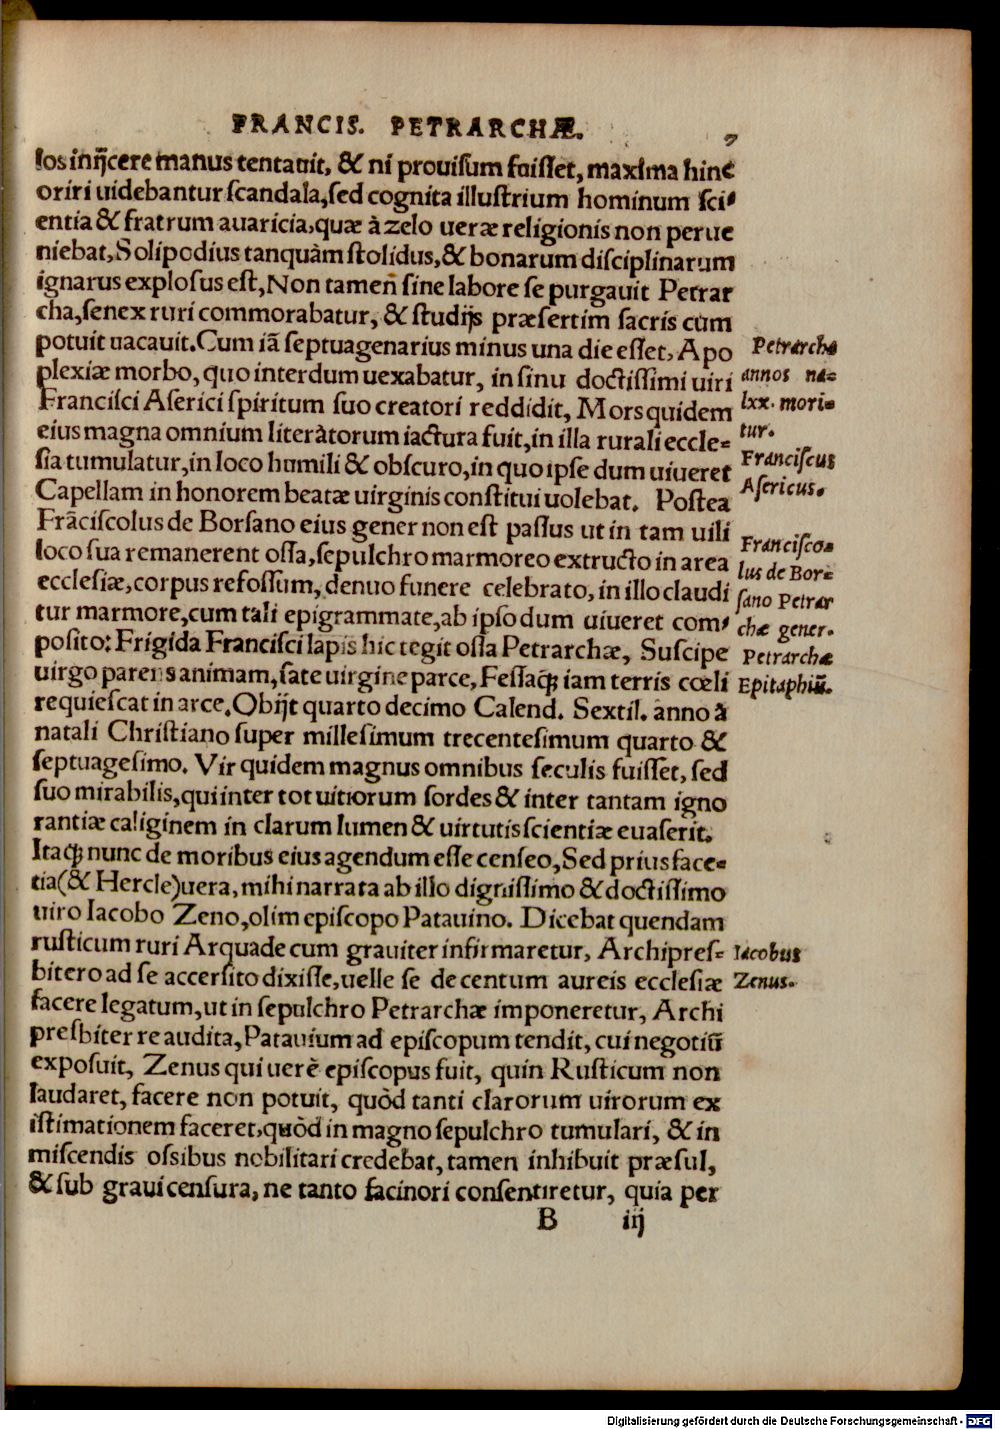 FRANCIS. PETRARCHÆ. 7
los inijcere manus tentauit, & ni prouisum fuisset, maxima hinc
oriri uidebantur scandala, sed cognita illustrium hominum sci-
entia & fratrum auaricia, quæ à zelo ueræ religionis non perue
niebat, Solipodius tanquàm stolidus, & bonarum disciplinarum
ignarus explosus est, Non tamen̄ sine labore se purgauit Petrar
cha, senex ruri commorabatur, & studijs præsertim sacris cùm
potuit uacauit. Cum iā septuagenarius minus una die esset, Apo
plexiæ morbo, quo interdum uexabatur, in sinu doctissimi uiri
Francisci Aserici spiritum suo creatori reddidit, Mors quidem
eius magna omnium literàtorum iactura fuit, in illa rurali eccle-
sia tumulatur, in loco humili & obscuro, in quo ipse dum uiueret
Capellam in honorem beatæ uirginis constitui uolebat. Postea
Frāciscolus de Borsano eius gener non est passus ut in tam uili
loco sua remanerent ossa, sepulchro marmoreo extructo in area
ecclesiæ, corpus refossum, denuo funere celebrato, in illo claudi
tur marmore, cum tali epigrammate, ab ipso dum uiueret com-
posito: Frigida Francisci lapis hic tegit ossa Petrarchæ, Suscipe
uirgo parens animam, sate uirgine parce, Fessaq́; iam terris cœli
requiescat in arce. Obijt quarto decimo Calend. Sextil. anno à
natali Christiano super millesimum trecentesimum quarto &
septuagesimo. Vir quidem magnus omnibus seculis fuisset, sed
suo mirabilis, qui inter tot uitiorum sordes & inter tantam igno
rantiæ caliginem in clarum lumen & uirtutis scientiæ euaserit.
Itaq́; nunc de moribus eius agendum esse censeo, Sed prius face-
tia (& Hercle) uera, mihi narrata ab illo dignissimo & doctissimo
uiro Iacobo Zeno, olim episcopo Patauino. Dicebat quendam
rusticum ruri Arquade cum grauiter infirmaretur, Archipres-
bitero ad se accersito dixisse, uelle se de centum aureis ecclesiæ
facere legatum, ut in sepulchro Petrarchæ imponeretur, Archi
presbiter re audita, Patauium ad episcopum tendit, cui negotiū
exposuit, Zenus qui uerè episcopus fuit, quin Rusticum non
laudaret, facere non potuit, quòd tanti clarorum uirorum ex
istimationem faceret, quòd in magno sepulchro tumulari, & in
miscendis ossibus nobilitari credebat, tamen inhibuit præsul,
& sub graui censura, ne tanto facinori consentiretur, quia per
B iij
Petrarcha
annos na-
lxx. mori-
tur.
Franciscus
Asericus.
Francisco-
lus de Bor-
sano Petrar
chæ gener.
Petrarchæ
Epitaphiū.
Iacobus
Zenus.
Digitalisierung gefördert durch die Deutsche Forschungsgemeinschaft - DFG